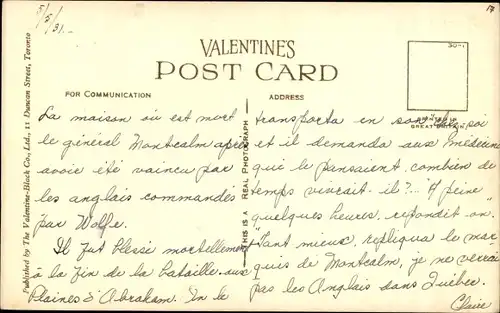 5/5/31.
17
VALENTINE'S
POST CARD
FOR COMMUNICATION
ADDRESS
Published by The Valentine-Black Co., Ltd., 11 Duncan Street, Toronto
THIS IS A REAL PHOTOGRAPH
GREAT BRITAIN
La maison où est mort
le général Montcalm après
avoir été vaincu par
les anglais commandés
par Wolfe.
Il fut blessé mortellement
à la fin de la bataille aux
Plaines d'Abraham. On le
transporta en son chez-soi
et il demanda aux médecins
qui le pansaient combien de
temps vivrait-il?... "A peine
quelques heures, répondit-on."
"Tant mieux, répliqua le mar
quis de Montcalm, je ne verrai
pas les Anglais dans Québec.
Claire